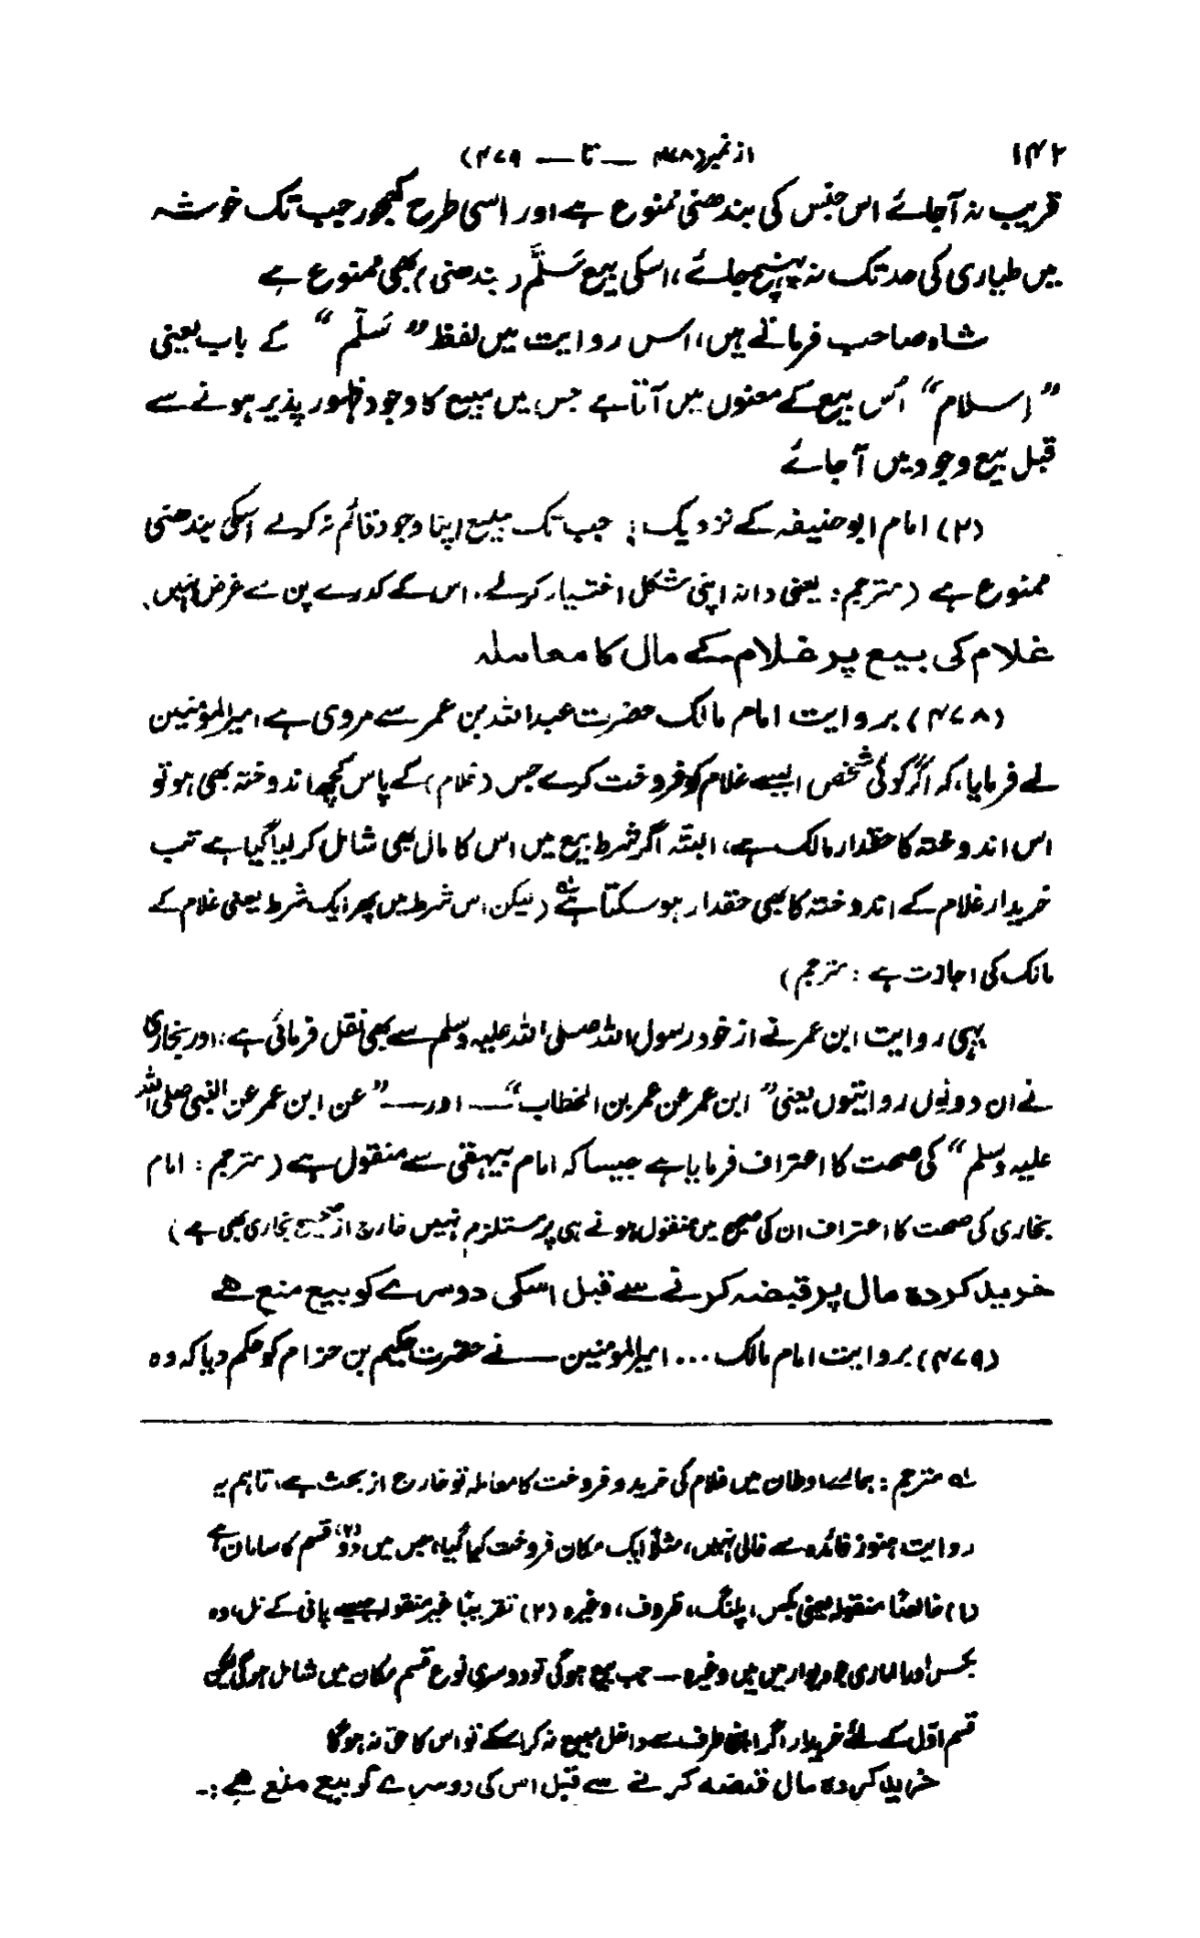 ۱۴۲ از نمبر(۴۷۸ — تا — ۴۷۹)
قریب نہ آجائے اس جنس کی بندھنی ممنوع ہے اور اسی طرح کھجور جب تک خوشہ
میں طیاری کی حد تک نہ پہنچ جائے، اسکی بیع سَلَّم (بندھنی) بھی ممنوع ہے
شاہ صاحب فرماتے ہیں، اس روایت میں لفظ ”سَلّم“ کے باب یعنی
”اسلام“ اُس بیع کے معنوں میں آتا ہے جس میں مبیع کا وجود ظہور پذیر ہونے سے
قبل بیع وجود میں آجائے
(۲) امام ابو حنیفہ کے نزدیک: جب تک مبیع اپنا وجود قائم نہ کرلے اسکی بندھنی
ممنوع ہے (مترجم: یعنی دانہ اپنی شکل اختیار کرلے، اس کے کدرے پن سے غرض نہیں،
غلام کی بیع پر غلام کے مال کا معاملہ
(۴۷۸) بروایت امام مالک حضرت عبداللہ بن عمر سے مروی ہے، امیر المومنین
نے فرمایا، کہ اگر کوئی شخص ایسے غلام کو فروخت کرے جس (غلام) کے پاس کچھ اندوختہ بھی ہو تو
اس اندوختہ کا حقدار مالک ہے، البتّہ اگر شرط بیع میں اس کا مال بھی شامل کر لیا گیا ہے تب
خریدار غلام کے اندوختہ کا بھی حقدار ہو سکتا ہے لہ (لیکن اس شرط میں پھر ایک شرط یعنی غلام کے
مالک کی اجازت ہے: مترجم)
یہی روایت ابن عمر نے از خود رسول اللہ صلی اللہ علیہ وسلم سے بھی نقل فرمائی ہے: اور بخاری
نے ان دونوں روایتوں یعنی ”ابن عمر عن عمر بن الخطاب“ — اور — ”عن ابن عمر عن النبی صلی اللہ
علیہ وسلم“ کی صحت کا اعتراف فرمایا ہے جیسا کہ امام بیہقی سے منقول ہے (مترجم: امام
بخاری کی صحت کا اعتراف ان کی صحیح میں منقول ہونے ہی پر مستلزم نہیں خارج از صحیح بخاری بھی ہے)
خرید کردہ مال پر قبضہ کرنے سے قبل اسکی دوسرے کو بیع منع ہے
(۴۷۹) بروایت امام مالک ... امیر المومنین — نے حضرت حکیم بن حزام کو حکم دیا کہ وہ
لہ مترجم: ہمارے اوطان میں غلام کی خرید و فروخت کا معاملہ تو خارج از بحث ہے، تاہم یہ
روایت ہنوز فائدہ سے خالی نہیں، مثلاً ایک مکان فروخت کیا گیا، جس میں دو(۲) قسم کا سامان ہے
(۱) خالصًا منقولہ یعنی بکس، پلنگ، ظروف، وغیرہ (۲) تقریبًا غیر منقولہ جیسے پانی کے نل، وہ
بکس اور الماری جو دیوار میں ہیں وغیرہ — جب بیع ہوگی تو دوسری نوع قسم مکان میں شامل ہوگی لیکن
قسم اوّل کے لئے خریدار اگر اپنی طرف سے داخل مبیع نہ کرا سکے تو اس کا حق نہ ہوگا
خرید کردہ مال قبضہ کرنے سے قبل اس کی دوسرے کو بیع منع ہے:۔